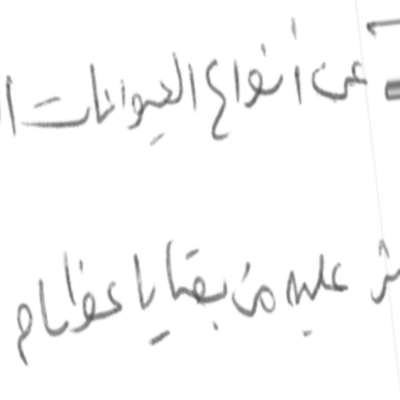 عن أنواع الحيوانات
عليه من بقايا عظام